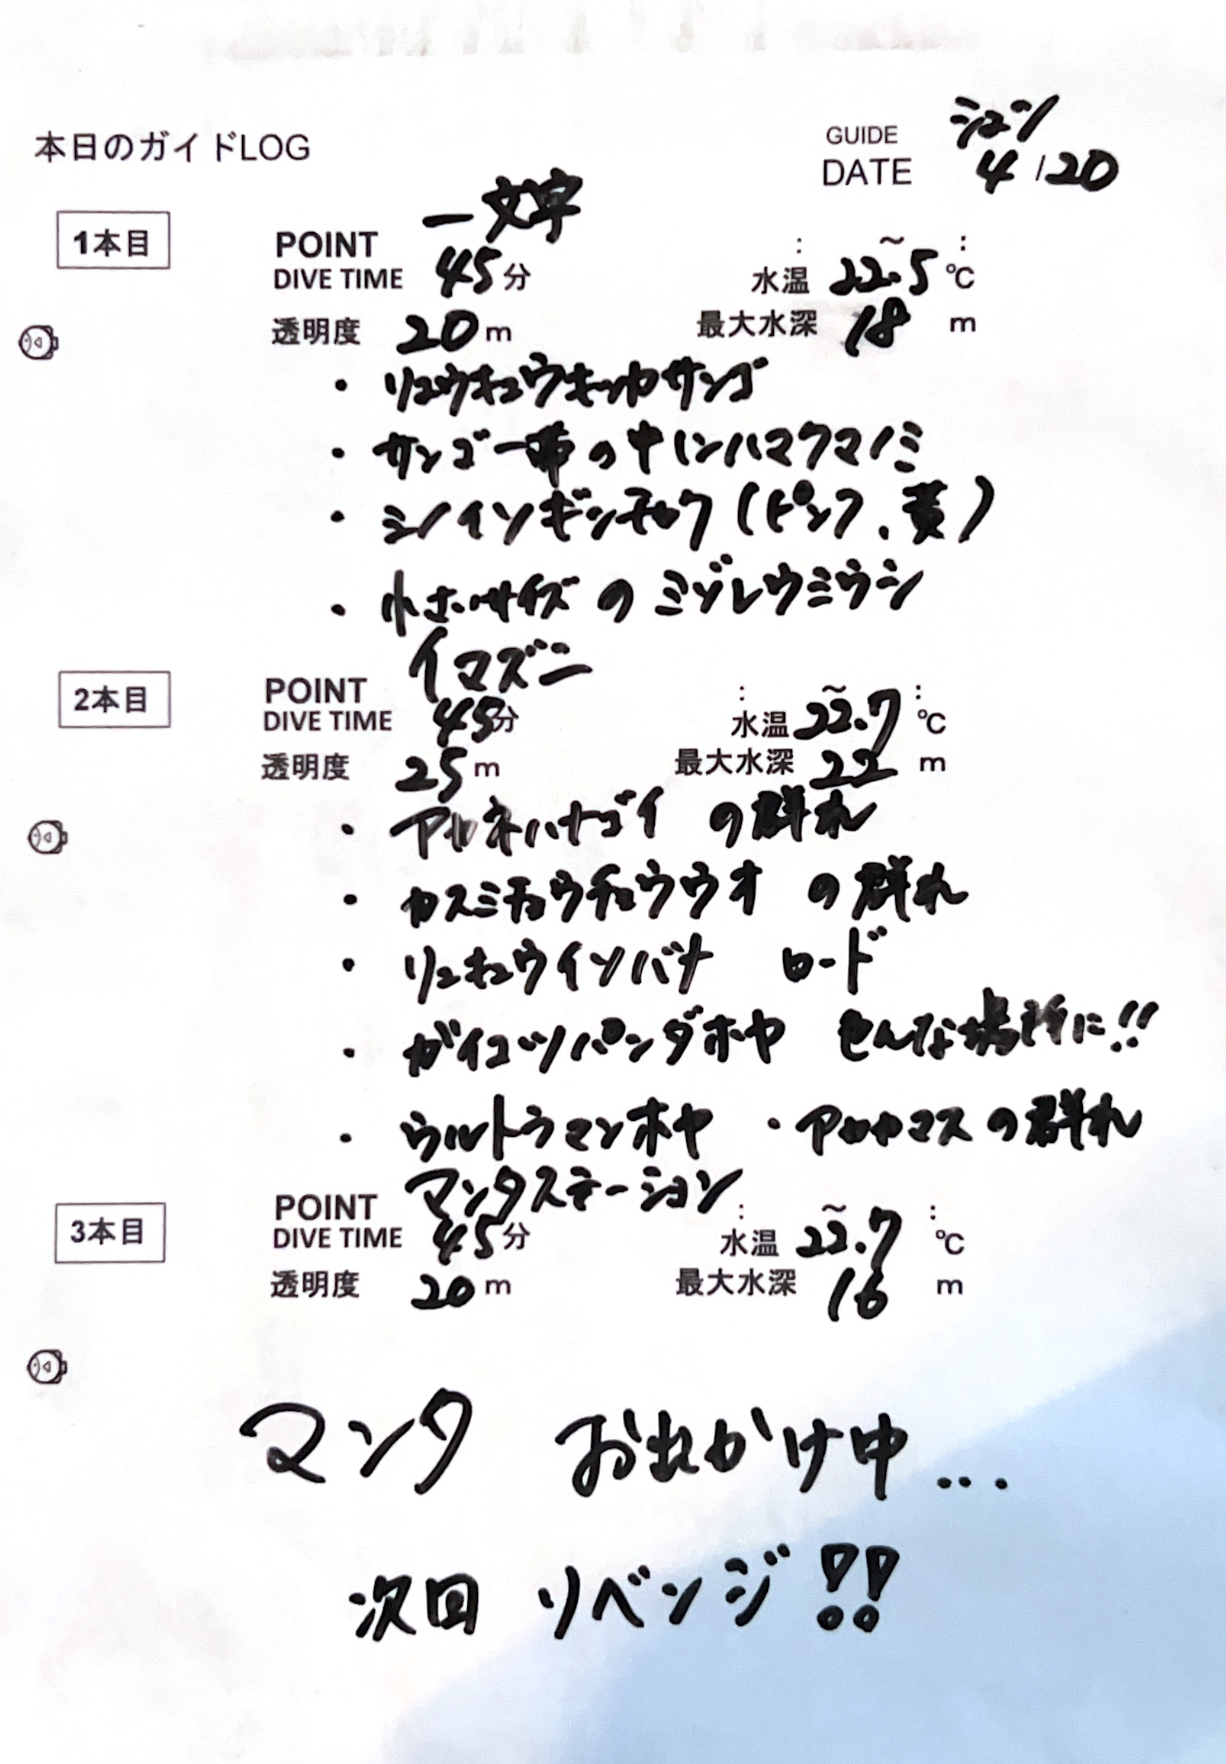 本日のガイドLOG
GUIDE シュン
DATE 4/20
1本目
POINT 一文字
: ~ :
DIVE TIME 45分 水温 22.5℃
透明度 20m 最大水深 18m
・リュウキュウキッカサンゴ
・サンゴ一帯の中にハマクマノミ
・シノイソギンチャク(ピンク、黄)
・小さいサイズのミゾレウミウシ
2本目
POINT イマズニ
: ~ :
DIVE TIME 45分 水温 22.7℃
透明度 25m 最大水深 22m
・アカネハナゴイの群れ
・カスミチョウチョウウオの群れ
・リュキュウイソバナ ロード
・ガイコツパンダホヤ 色んな場所に!!
・ウルトラマンホヤ ・アカヤマスの群れ
3本目
POINT マンタステーション
: ~ :
DIVE TIME 45分 水温 22.7℃
透明度 20m 最大水深 16m
マンタ おれかけ中...
次回 リベンジ!!